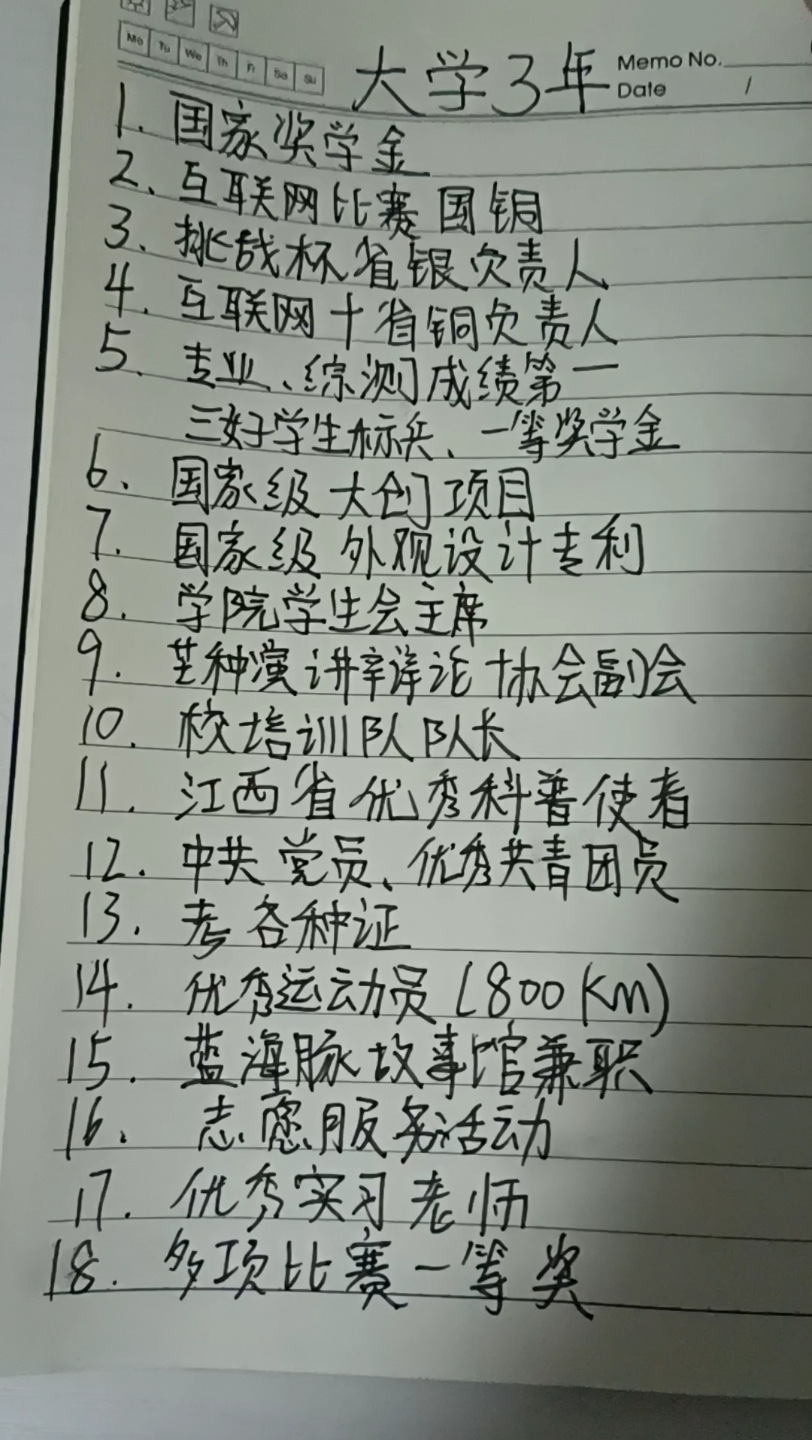 Mo Tu We Th Fr Sa Su
大学3年
Memo No.
Date /
1. 国家奖学金
2. 互联网比赛国铜
3. 挑战杯省银负责人
4. 互联网十省铜负责人
5. 专业、综测成绩第一
三好学生标兵、一等奖学金
6. 国家级大创项目
7. 国家级外观设计专利
8. 学院学生会主席
9. 芒种演讲辩论协会副会
10. 校培训队队长
11. 江西省优秀科普使者
12. 中共党员、优秀共青团员
13. 考各种证
14. 优秀运动员(800Km)
15. 蓝海豚故事馆兼职
16. 志愿服务活动
17. 优秀实习老师
18. 多项比赛一等奖